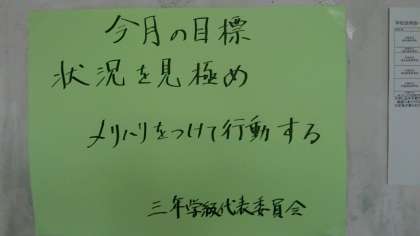 今月の目標
状況を見極め
メリハリをつけて行動する
三年学級代表委員会